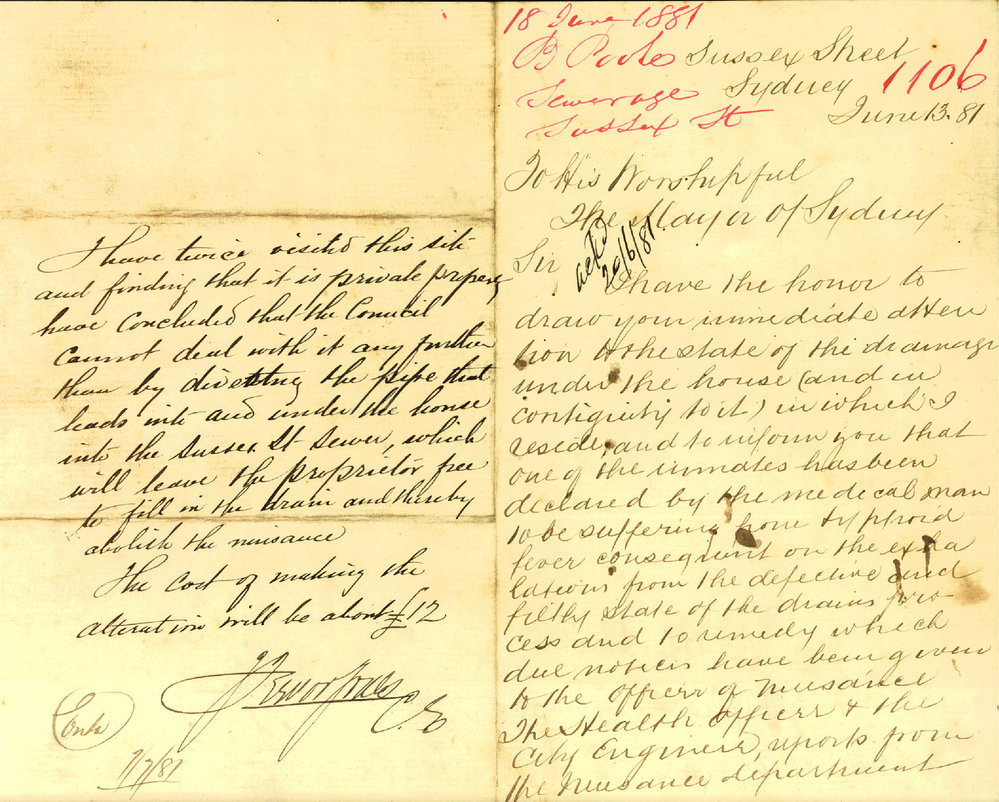 I have twice visited this site
and finding that it is private property
have concluded that the Council
cannot deal with it any further
than by directing the pipe that
leads into and under the house
into the Sussex St Sewer, which
will leave the proprietor free
to fill in the drain and thereby
abolish the nuisance
The cost of making the
alteration will be about £12
C.E
7/7/81
18 June 1881
B Poole
Sewerage
Sussex St
1106
Sussex Street
Sydney
June 13. 81
To His Worshipful
The Mayor of Sydney
ackd
20/6/81
Sir
I have the honor to
draw your immediate atten
tion to the state of the drainage
under the house (and in
contiguity to it) in which I
reside, and to inform you that
one of the inmates has been
declared by the medical man
to be suffering from typhoid
fever consequent on the exha
lations from the defective and
filthy state of the drains pro
cess and to remedy which
due notices have been given
to the Officer of Nuisance
The Health Officer & the
City Engineer, reports from
the Nuisance department